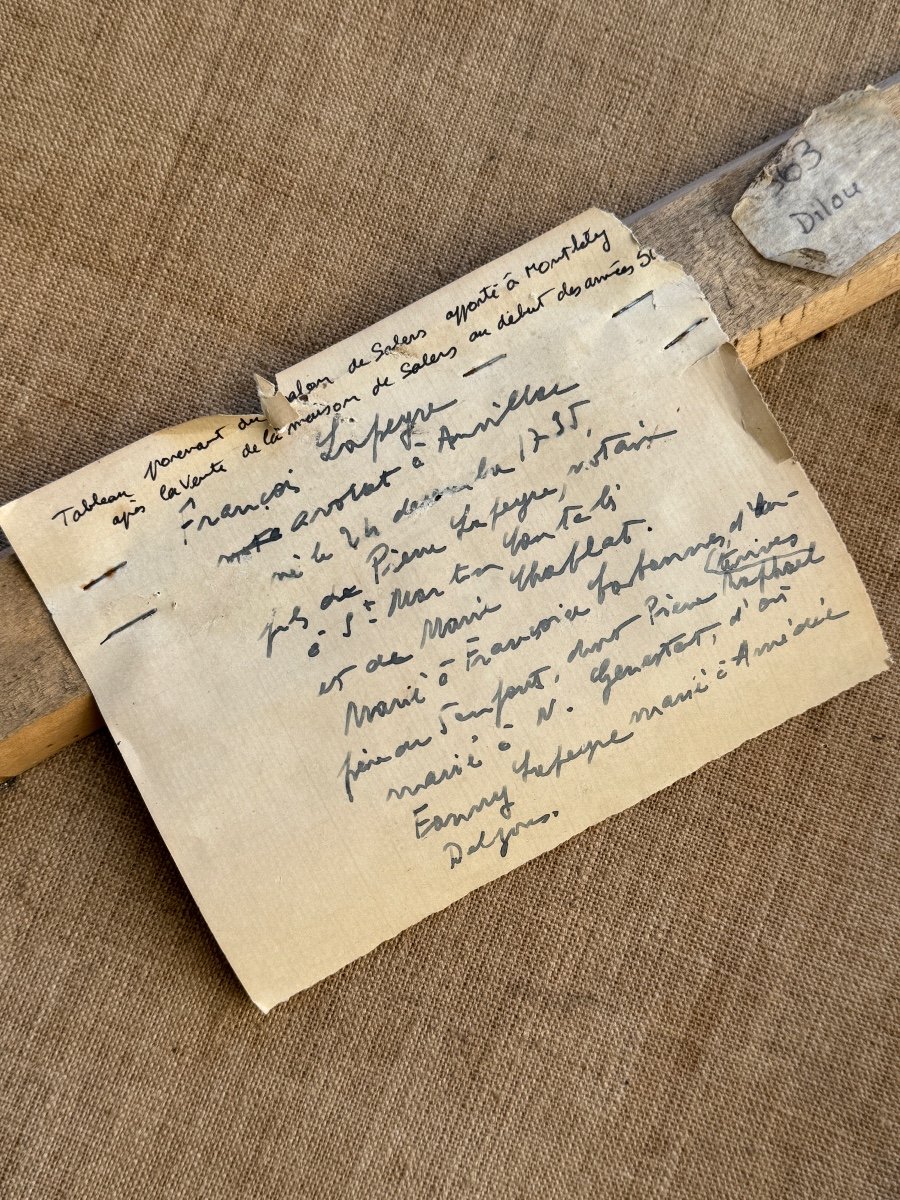 363
Dilou
Tableau provenant du salon de Salers apporté à Montlaty
après la vente de la maison de Salers au début des années
François Lapeyre
avocat à Aurillac
né le 24 décembre 1735,
fils de Pierre Lapeyre, notaire
à St Martin
et de Marie Chablat.
Marié à Françoise
père de 5 enfants, dont Pierre Raphaël
marié à N. Genestat, d'où
Fanny Lapeyre marié à Amédée
Delzons.